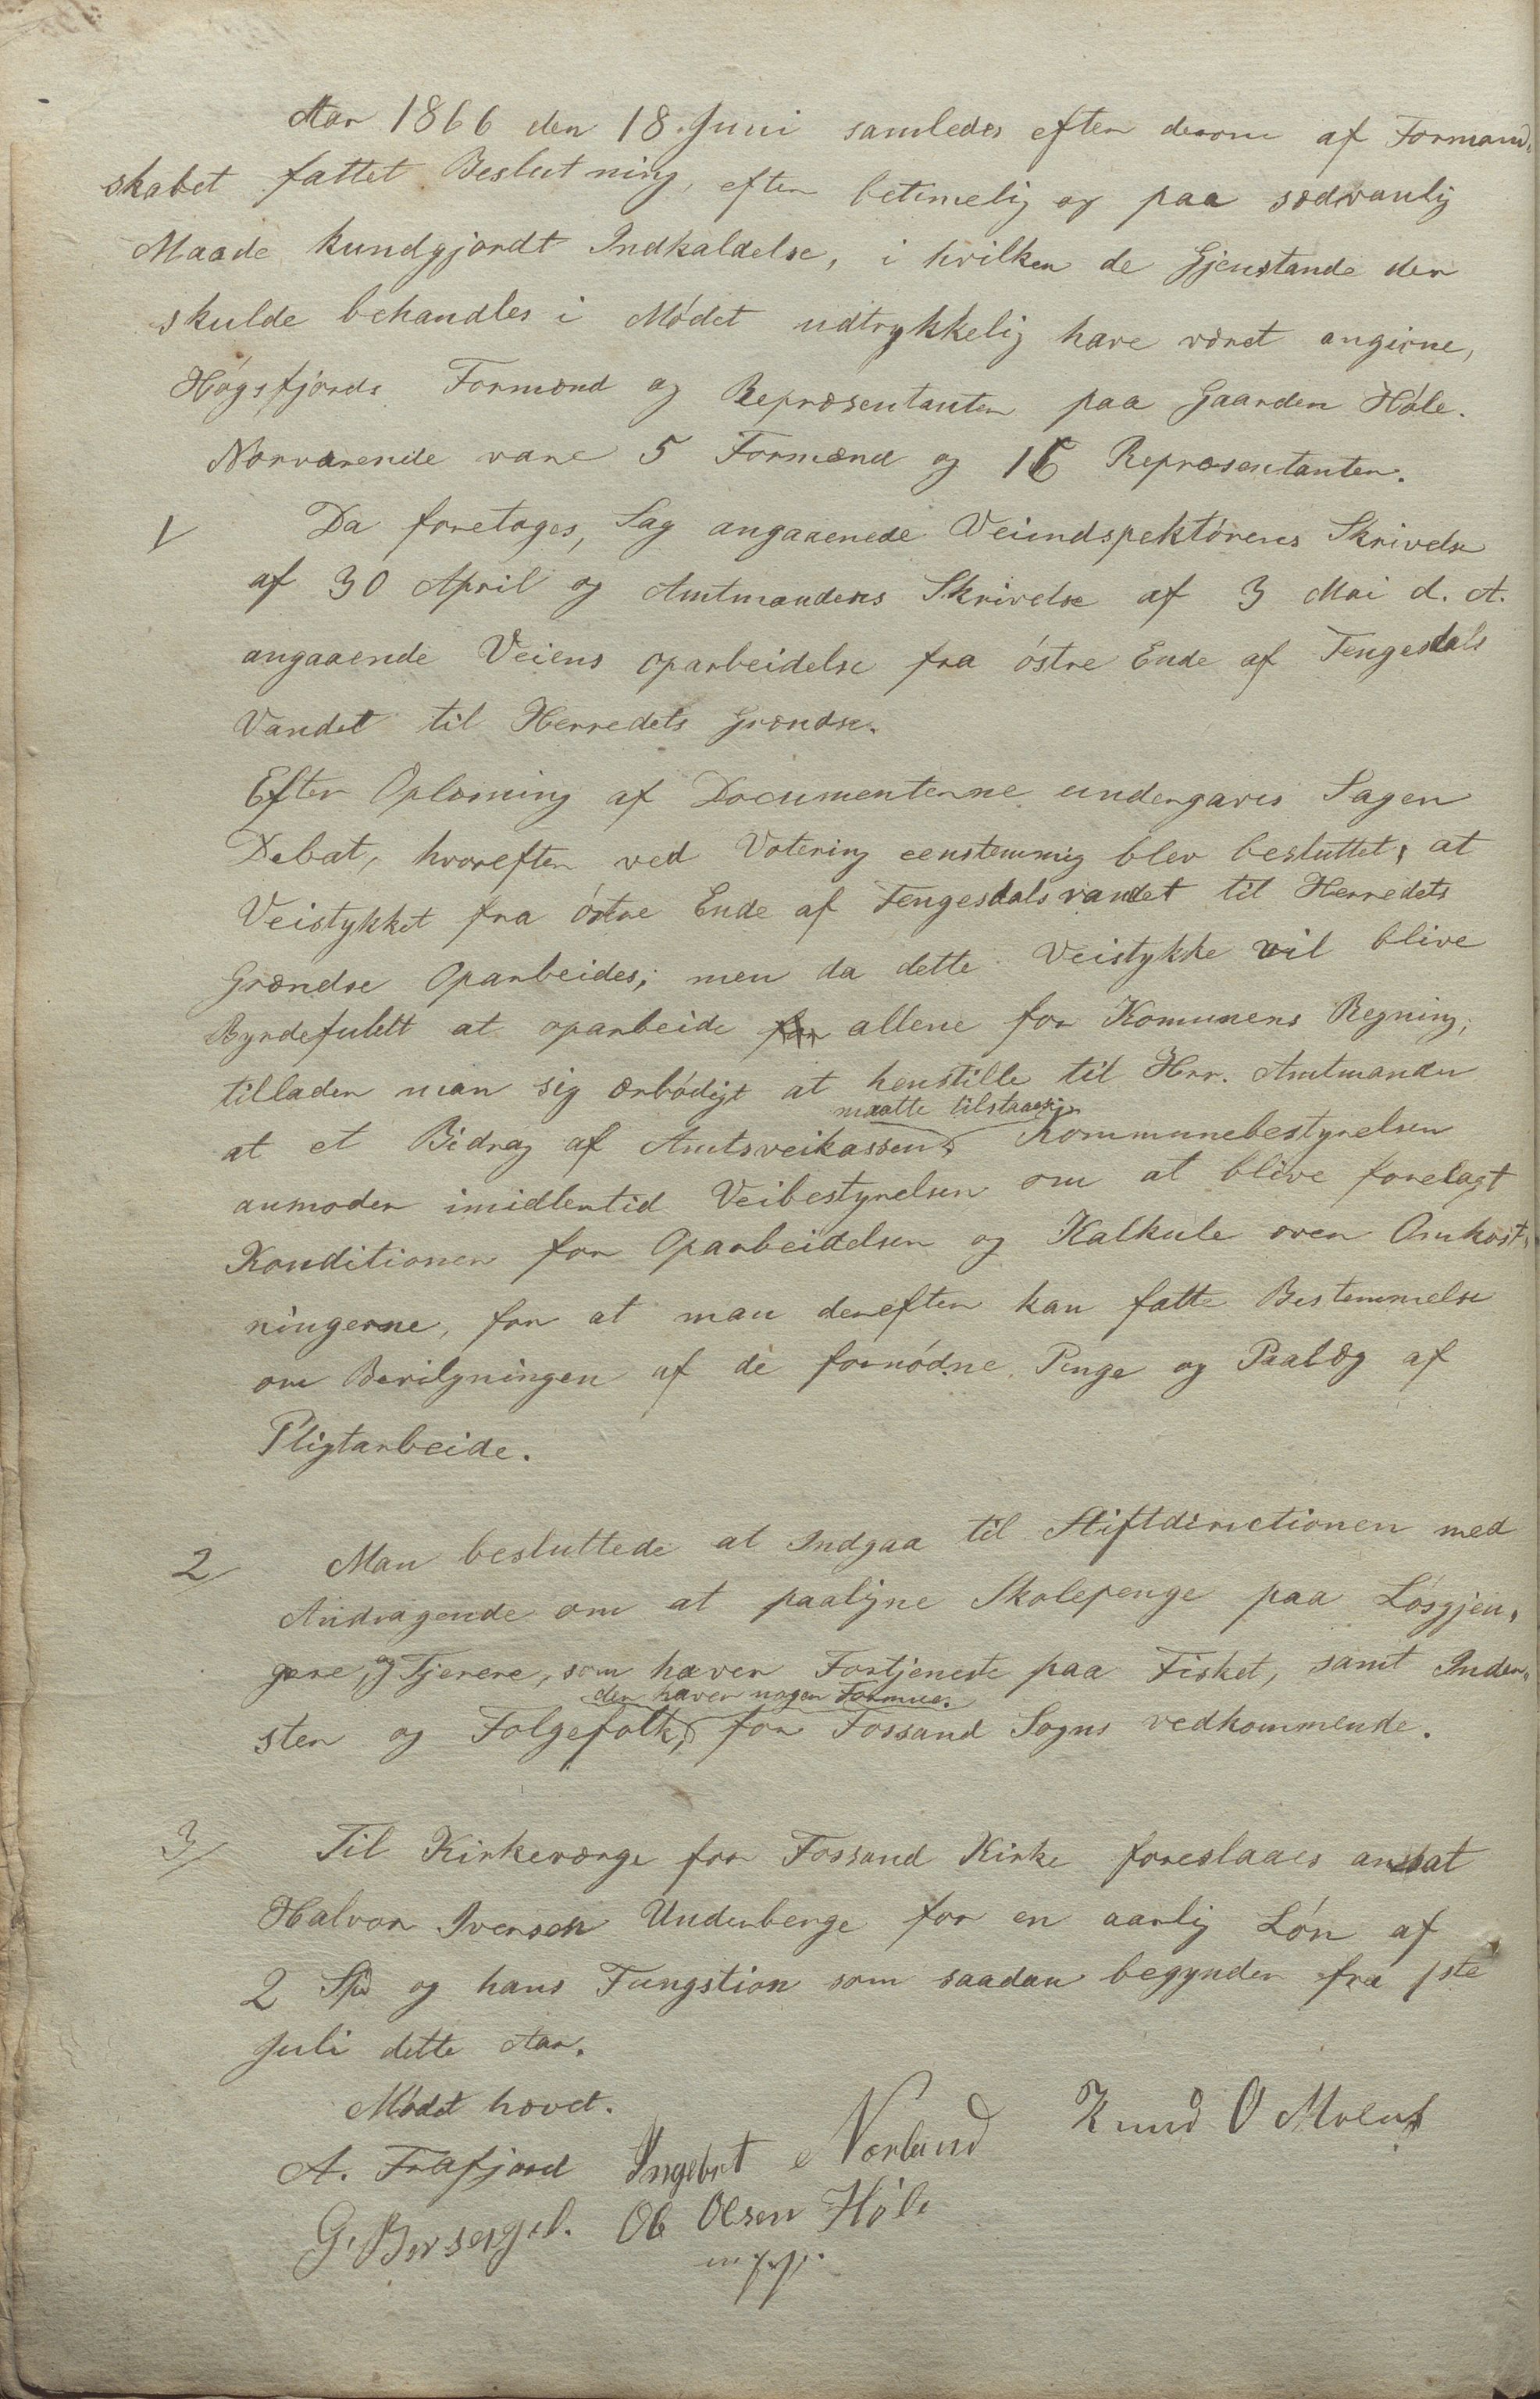 Aar 1866 den 18. Juni samledes efter derom af Formand-
skabet fattet Beslutning, efter betimelig og paa sædvanlig
Maade kundgjordt Indkaldelse, i hvilken de Gjenstande der
skulde behandles i Mødet udtrykkelig have været angivne,
Høgsfjords Formænd og Repræsentanter paa Gaarden Høle.
Nærværende vare 5 Formænd og 16 Repræsentanter.
1/ Da foretoges, Sag angaaenede Veiindspektørens Skrivelse
af 30 April og Amtmandens Skrivelse af 3 Mai d. A.
angaaende Veiens oparbeidelse fra østre Ende af Tengesdals
Vandet til Herredets Grændse.
Efter Oplæsning af Documenterne undergaves Sagen
Debat, hvorefter ved Votering eenstemmig blev besluttet, at
Veistykket fra østre Ende af Tengesdalsvandet til Herredets
Grændse Oparbeides; men da dette Veistykke vil blive
Byrdefuldt at oparbeide for allene for Komunens Regning,
tillader man sig ærbødigt at henstille til Hrr. Amtmanden
maatte tilstaaes;
at et Bidrag af Amtsveikassen. Kommunebestyrelsen
anmoder imidlertid Veibestyrelsen om at blive forelagt
Konditioner for Oparbeidelsen og Kalkule over Omkost-
ningerne, for at man derefter kan fatte Bestemmelse
om Bevilgningen af de fornødne Penge og Paalæg af
Pligtarbeide.
2/ Man besluttede at Indgaa til Stiftdirectionen med
Andragende om at paaligne Skolepenge paa Løsgjen-
gere, og Tjenere, som haver Fortjeneste paa Fisket, samt Inder-
der haver nogen Formue.
ster og Folgefolk, for Fossand Sogns vedkommende.
3/ Til Kirkeværge for Fossand Kirke foreslaaes ansat
Halvor Iversen Underberge for en aarlig Løn af
2 Spd og hans Fungstion som saadan begynder fra 1ste
Juli dette Aar.
Mødet hævet.
A. Frafjord Ingebrt Norland Knud O
G. Bersagel. Ole Olsen Høle
m.f.p.